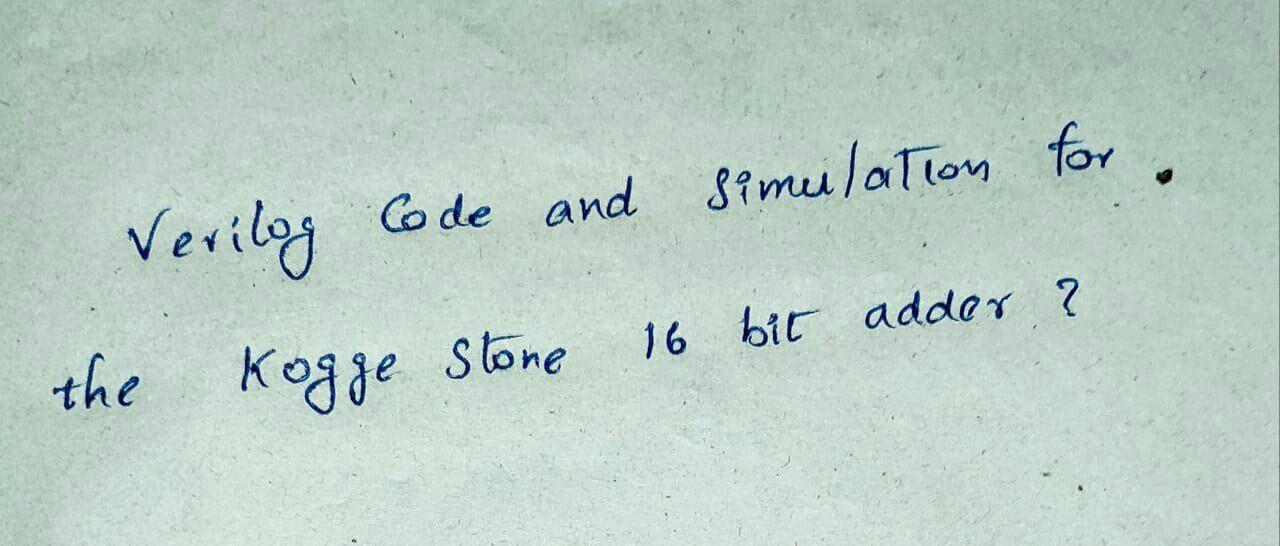 Verilog Code and Simulation for.
the Kogge Stone 16 bit adder ?